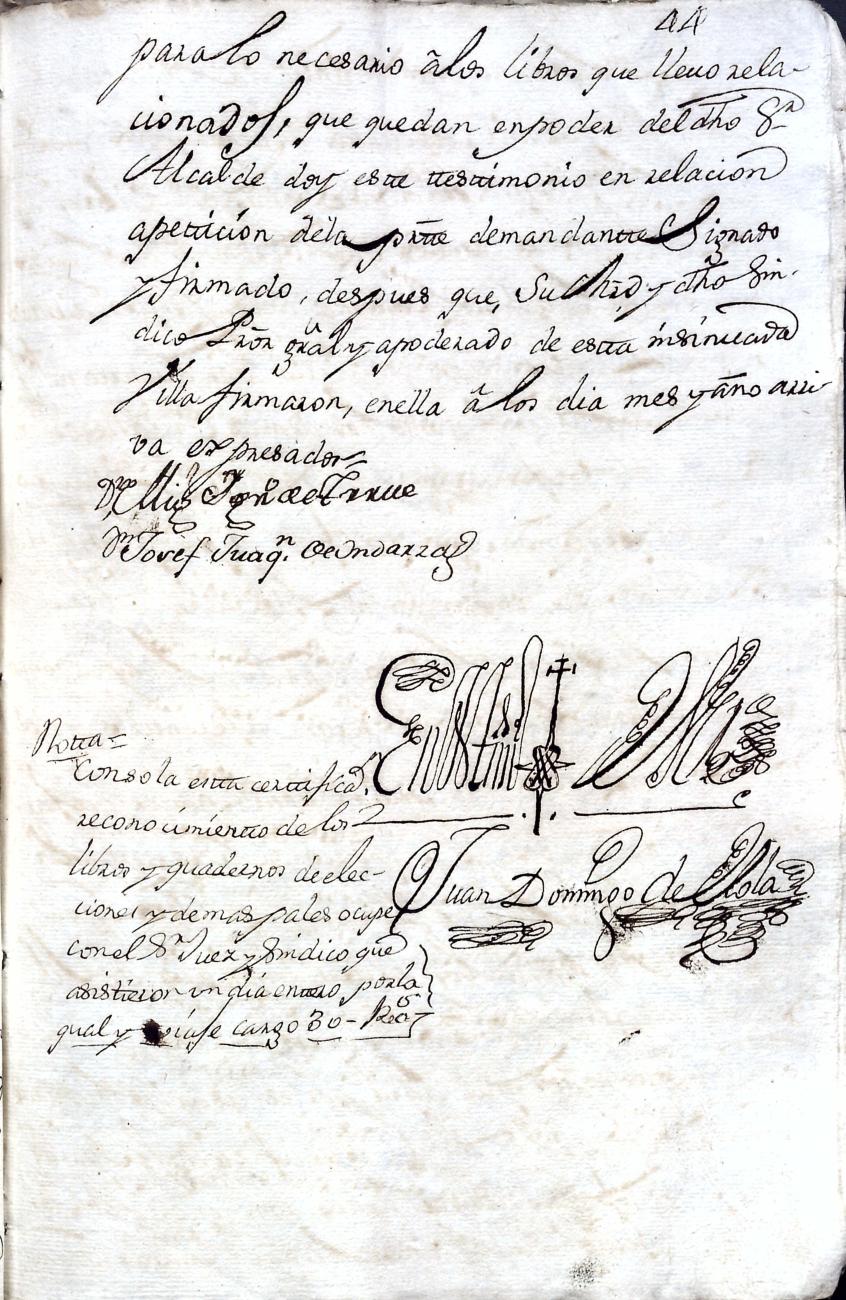 44
para lo necesario â los libros que llevo rela-
cionados, que quedan en poder del dho Sr
Alcalde doy este ttesttimonio en relacion
a petticíon dela prtte demandantte Signado
y firmado, despues que, Su Mrd y dho Sin-
dico Pror gral y apoderado de estta insinuada
Villa firmaron, en ella â los dia mes y año arri-
va expresados=
Dn Josef Juaqn. de Undarza
Notta=
Con sola estta certtificaon.
reconocimientto de los
libros y quadernos de elec-
ciones y demas pales ocupe
con el Sr Juez y Sindico que
asisttieron un dia entero por la
qual y viaje cargo 30- Rs
En testtimo de Verdad
Juan Domingo de